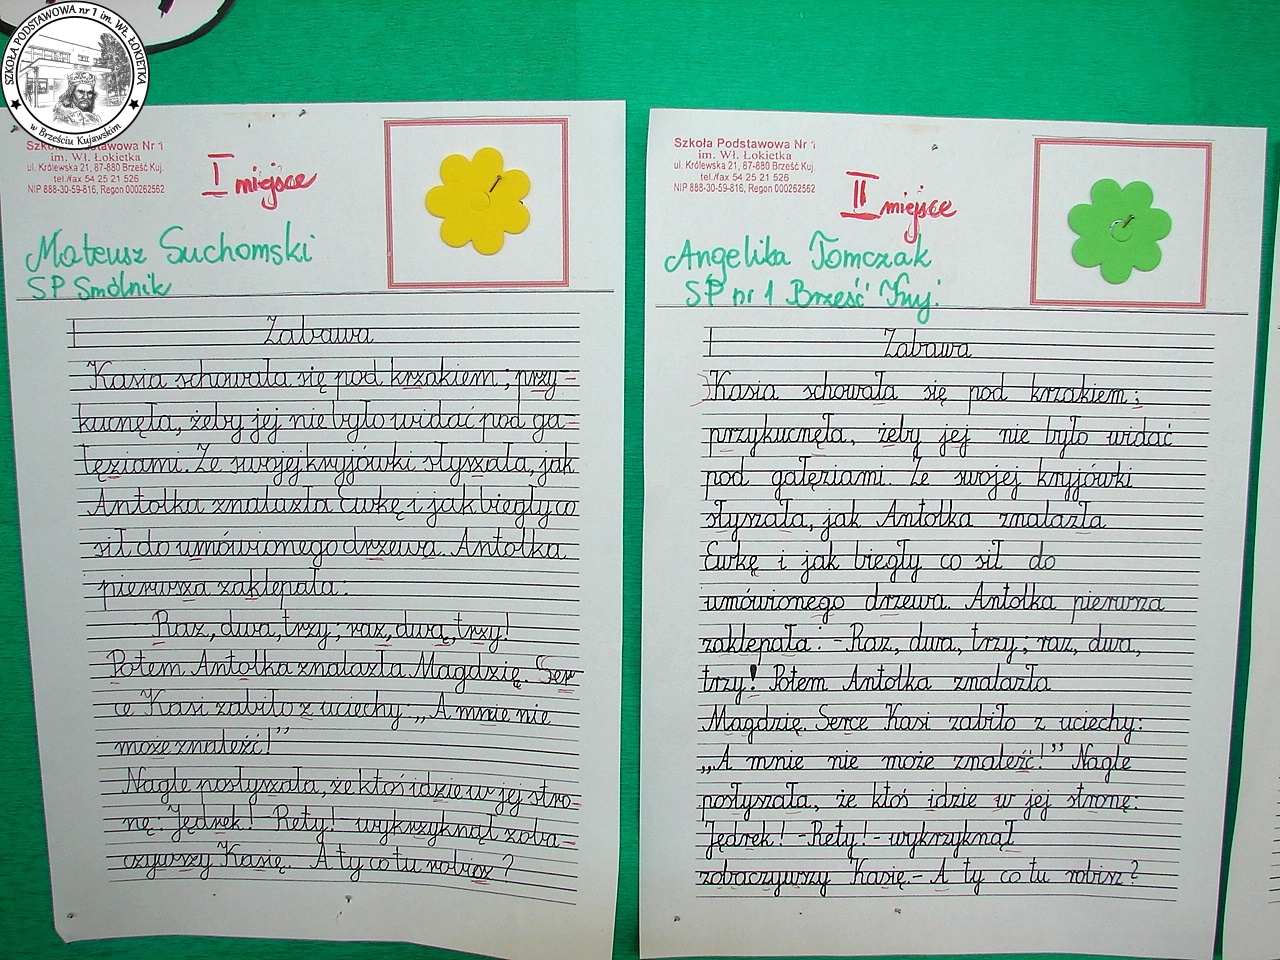 SZKOŁA PODSTAWOWA nr 1 im. WŁ. ŁOKIETKA
w Brześciu Kujawskim
Szkoła Podstawowa Nr 1
im. Wł. Łokietka
ul. Królewska 21, 87-880 Brześć Kuj.
tel./fax 54 25 21 526
NIP 888-30-59-816, Regon 000262562
I miejsce
Mateusz Suchomski
SP Smólnik
Zabawa
Kasia schowała się pod krzakiem; przy-
kucnęła, żeby jej nie było widać pod ga-
łęziami. Ze swojej kryjówki słyszała, jak
Antolka znalazła Ewkę i jak biegły co
sił do umówionego drzewa. Antolka
pierwsza zaklepała:
Raz, dwa, trzy; raz, dwa, trzy!
Potem Antolka znalazła Magdzię. Ser
ce Kasi zabiło z uciechy: „A mnie nie
może znaleźć!”
Nagle posłyszała, że ktoś idzie w jej stro-
nę: Jędrek! Rety! wykrzyknął zoba-
czywszy Kasię. A ty co tu robisz?
Szkoła Podstawowa Nr 1
im. Wł. Łokietka
ul. Królewska 21, 87-880 Brześć Kuj.
tel./fax 54 25 21 526
NIP 888-30-59-816, Regon 000262562
II miejsce
Angelika Tomczak
SP nr 1 Brześć Kuj.
Zabawa
Kasia schowała się pod krzakiem;
przykucnęła, żeby jej nie było widać
pod gałęziami. Ze swojej kryjówki
słyszała, jak Antolka znalazła
Ewkę i jak biegły co sił do
umówionego drzewa. Antolka pierwsza
zaklepała: - Raz, dwa, trzy; raz, dwa,
trzy! Potem Antolka znalazła
Magdzię. Serce Kasi zabiło z uciechy:
„A mnie nie może znaleźć!” Nagle
posłyszała, że ktoś idzie w jej stronę:
Jędrek! - Rety! - wykrzyknął
zobaczywszy Kasię. - A ty co tu robisz?